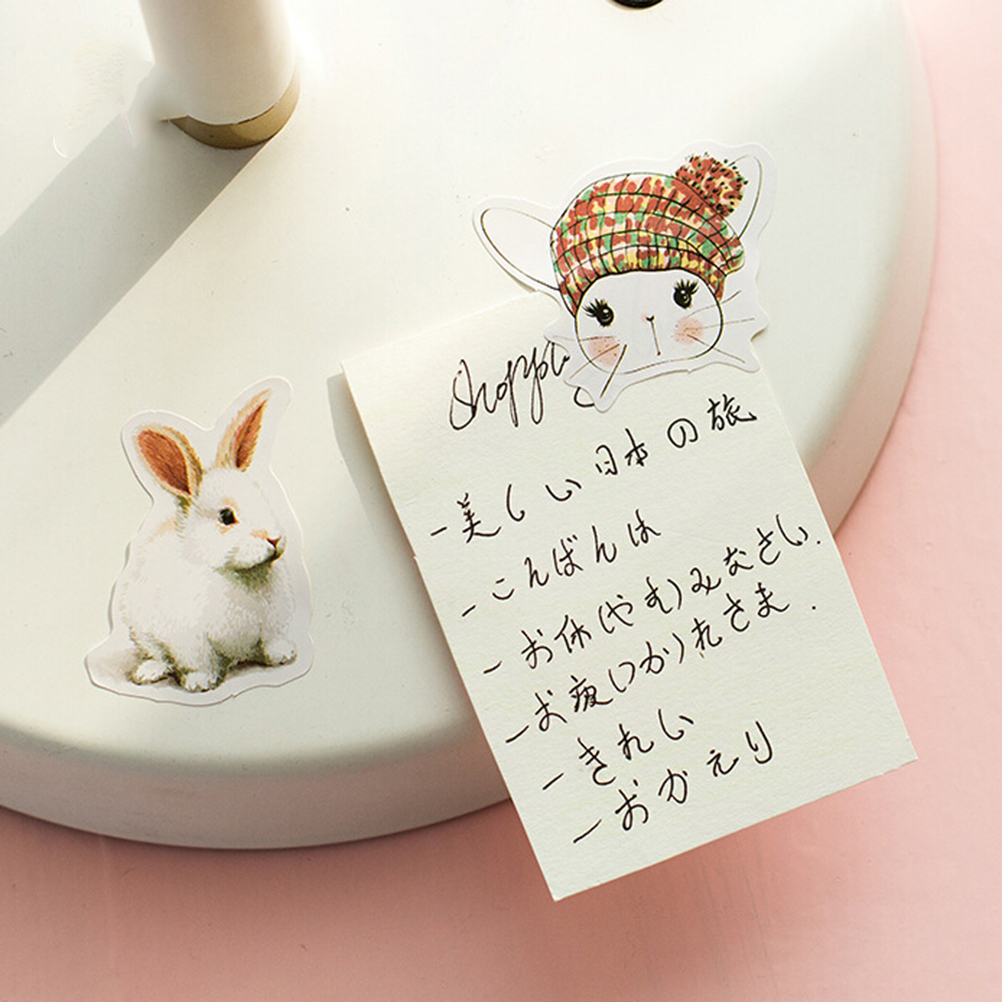 Shopping
-美しい日本の旅
-こんばんは
-お休(やむ)みなさい.
-お疲(つか)れさま.
-きれい
-おかえり